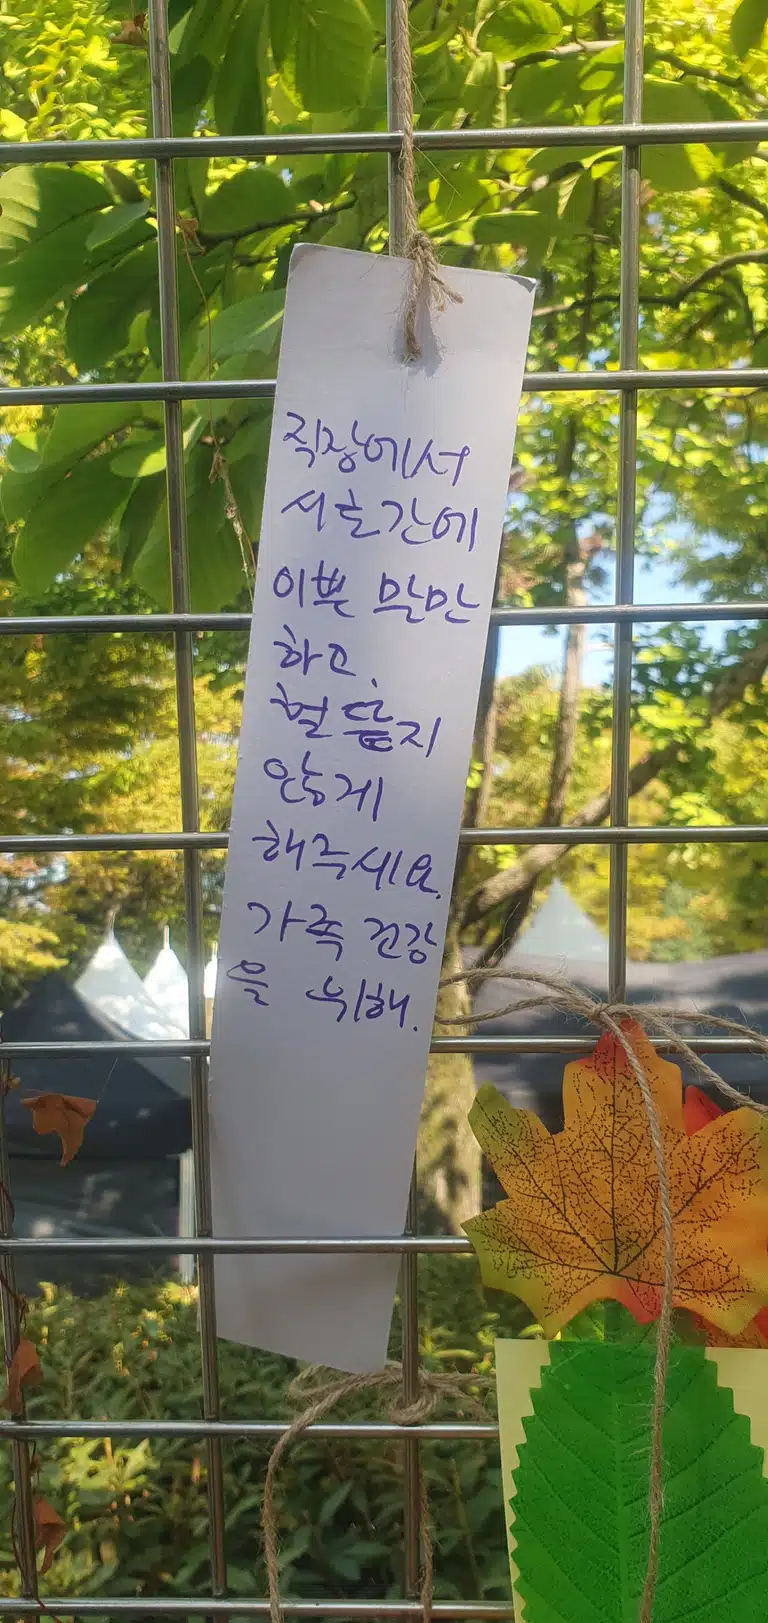 직장에서
서로간에
이쁜 말만
하고,
헐뜯지
않게
해주세요.
가족 건강
을 위해.